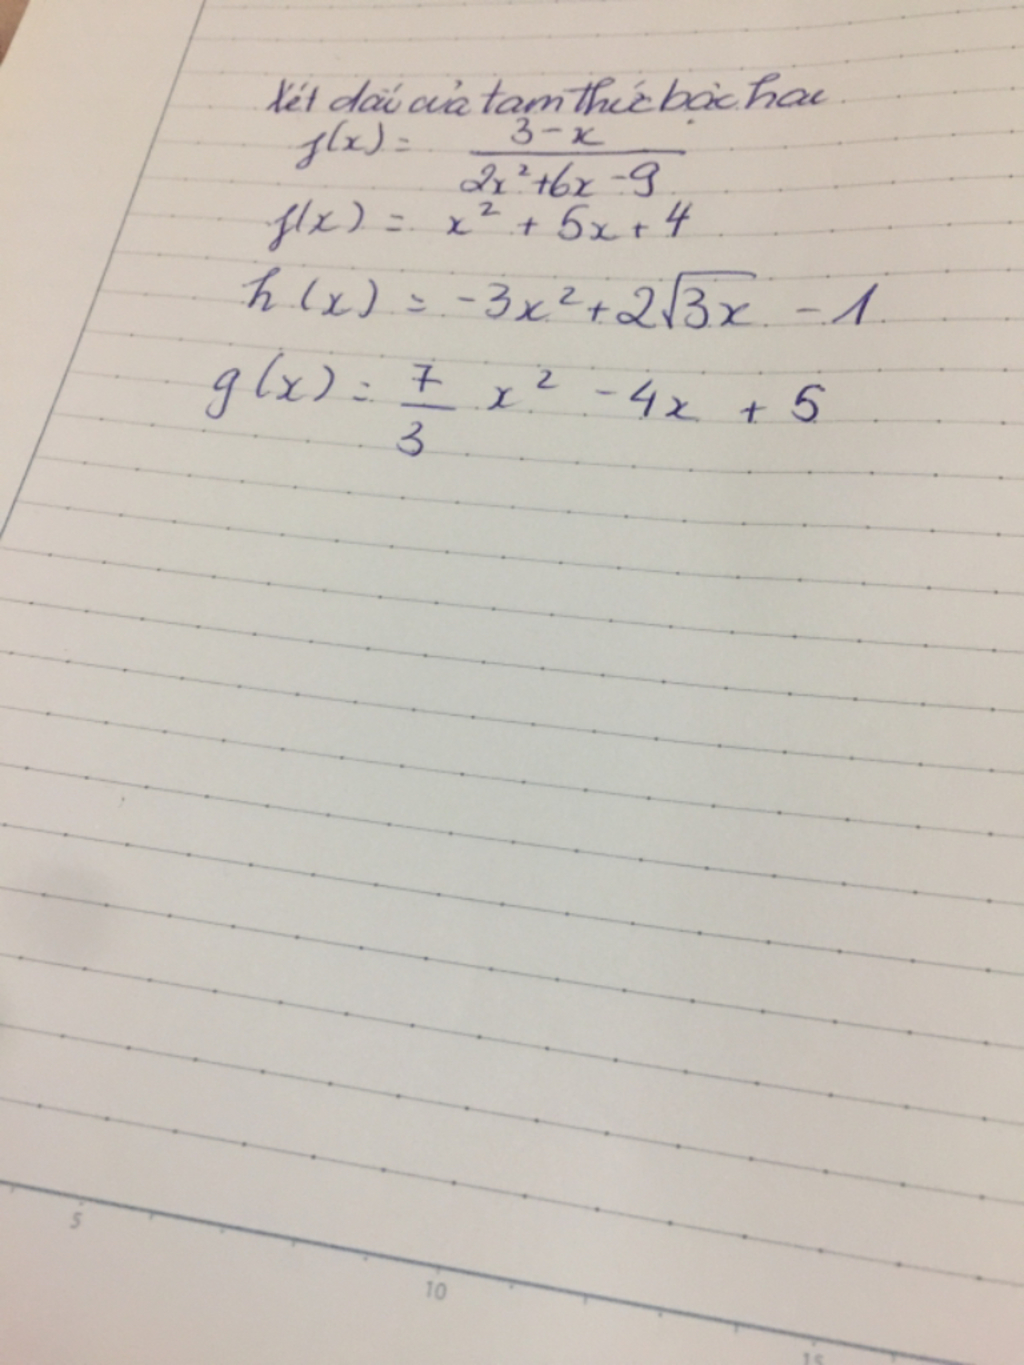 Xét dấu của tam thức bậc hai
f(x) = \frac{3-x}{2x²+6x-9}
f(x) = x² + 5x + 4
h(x) = -3x² + 2√3x - 1
g(x) = \frac{7}{3} x² - 4x + 5
5
10
15